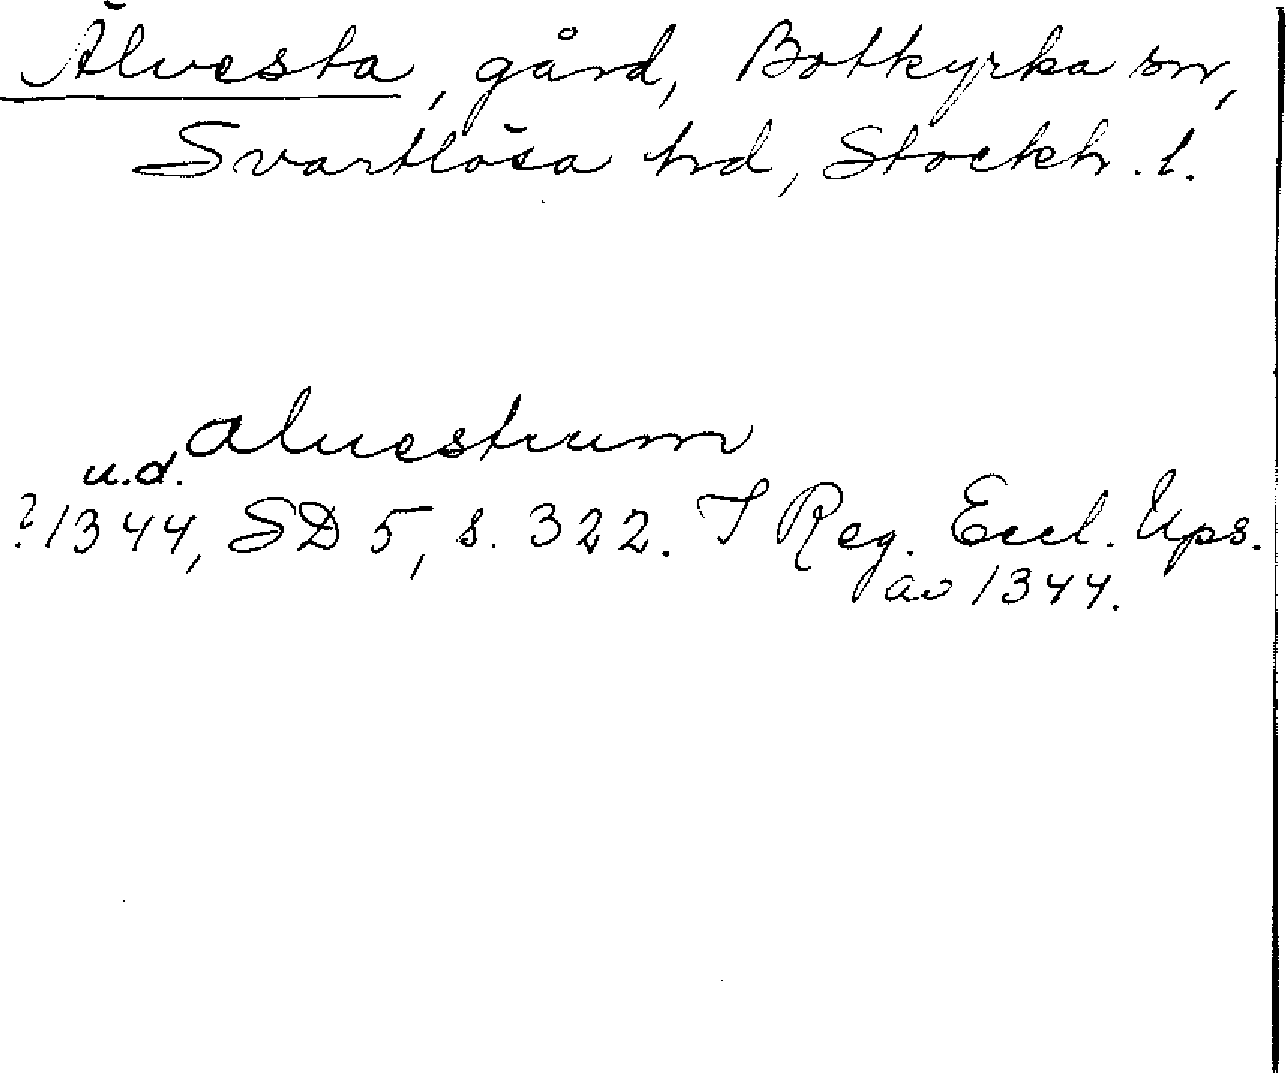 Älvesta, gård, Botkyrka sn,
Svartlösa hd, Stockh. l.
aluestum
u.d.
?1344, SD 5, s. 322. I Reg. Eccl. Ups.
av 1344.